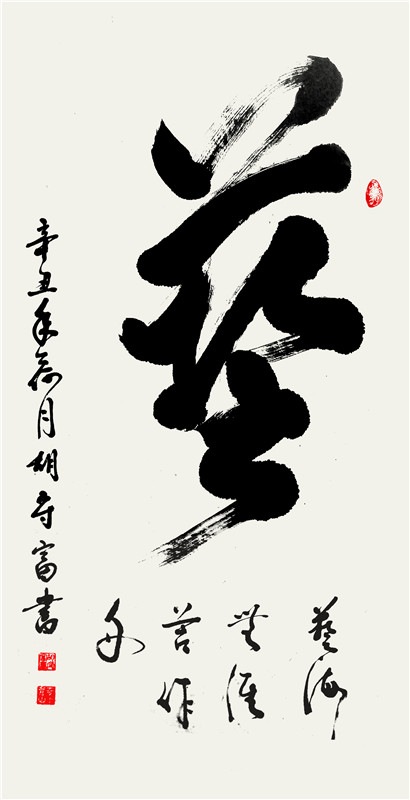 藝
藝海
無涯
苦作
舟
辛丑年荷月胡富書